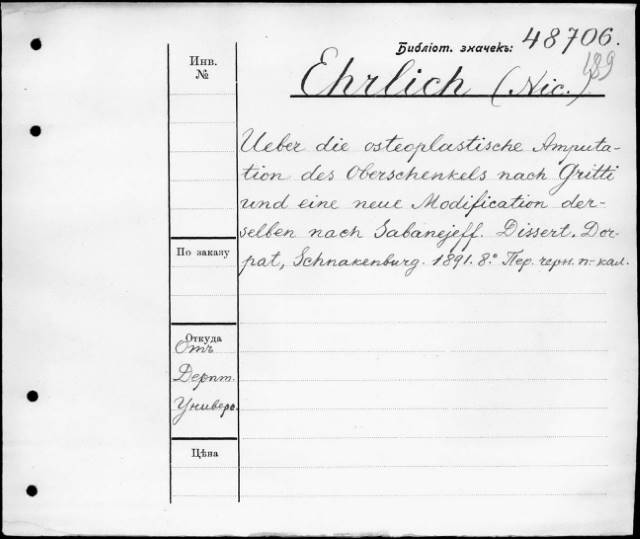 Библіот. значекъ: 48706.
489
Инв.
№
Ehrlich (Nic.)
Ueber die osteoplastische Amputa-
tion des Oberschenkels nach Gritti
und eine neue Modification der-
selben nach Sabanejeff. Dissert. Dor-
pat, Schnakenburg. 1891. 8.° Пер. черн. п. кал.
По заказу
Откуда
Отъ
Дерпт.
Универс.
Цѣна